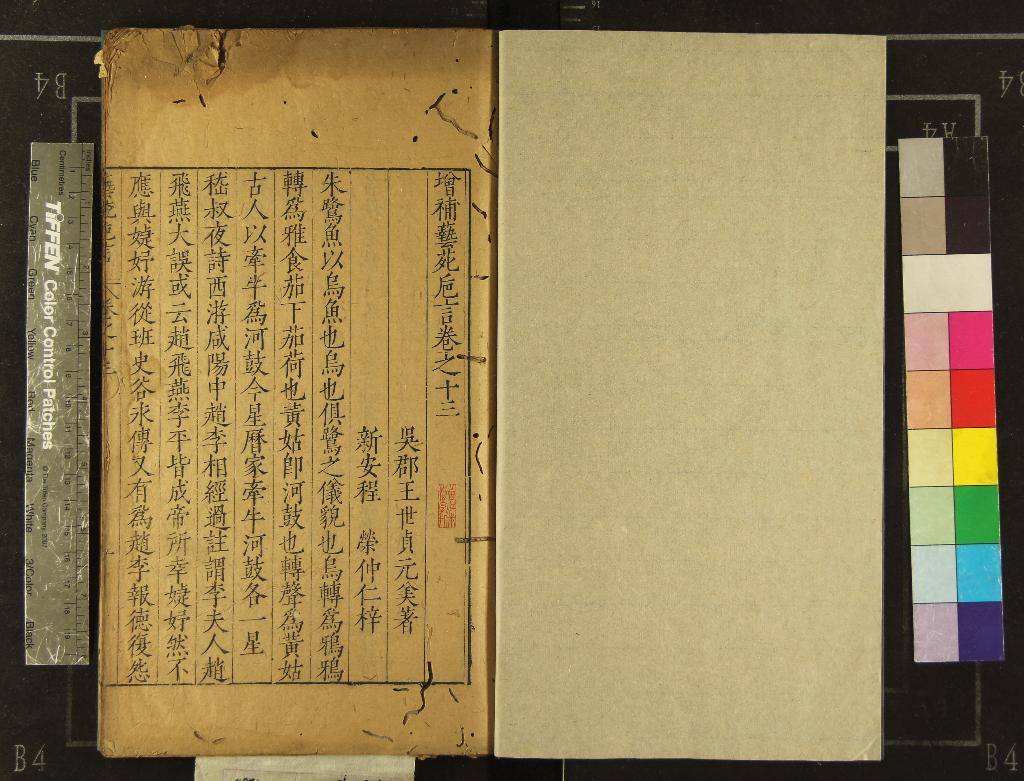 增補藝苑巵言卷之十三
吳郡王世貞元美著
新安程　榮仲仁梓
朱鷺魚以烏魚也烏也俱鷺之儀貌也烏轉爲鴉鴉
轉爲雅食茄下茄荷也黃姑卽河鼓也轉聲爲黃姑
古人以牽牛爲河鼓今星曆家牽牛河鼓各一星
嵇叔夜詩西游咸陽中趙李相經過註謂李夫人趙
飛燕大誤或云趙飛燕李平皆成帝所幸婕妤然不
應與婕妤游從班史谷永傳又有爲趙李報德復怨
TIFFEN Color Control Patches
© The Tiffen Company, 2007
Centimetres
Inches
Blue
Cyan
Green
Yellow
Red
Magenta
White
3/Color
Black
B4
B4
B4
B4
A4